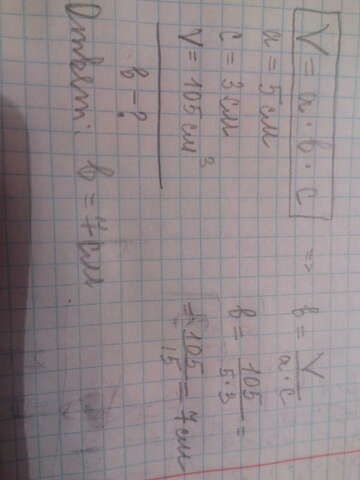 V = a · b · c => b = V / a · c
a = 5 см
c = 3 см
V = 105 см³
b - ?
b = 105 / 5 · 3 =
= 105 / 15 = 7 см
Ответ: b = 7 см